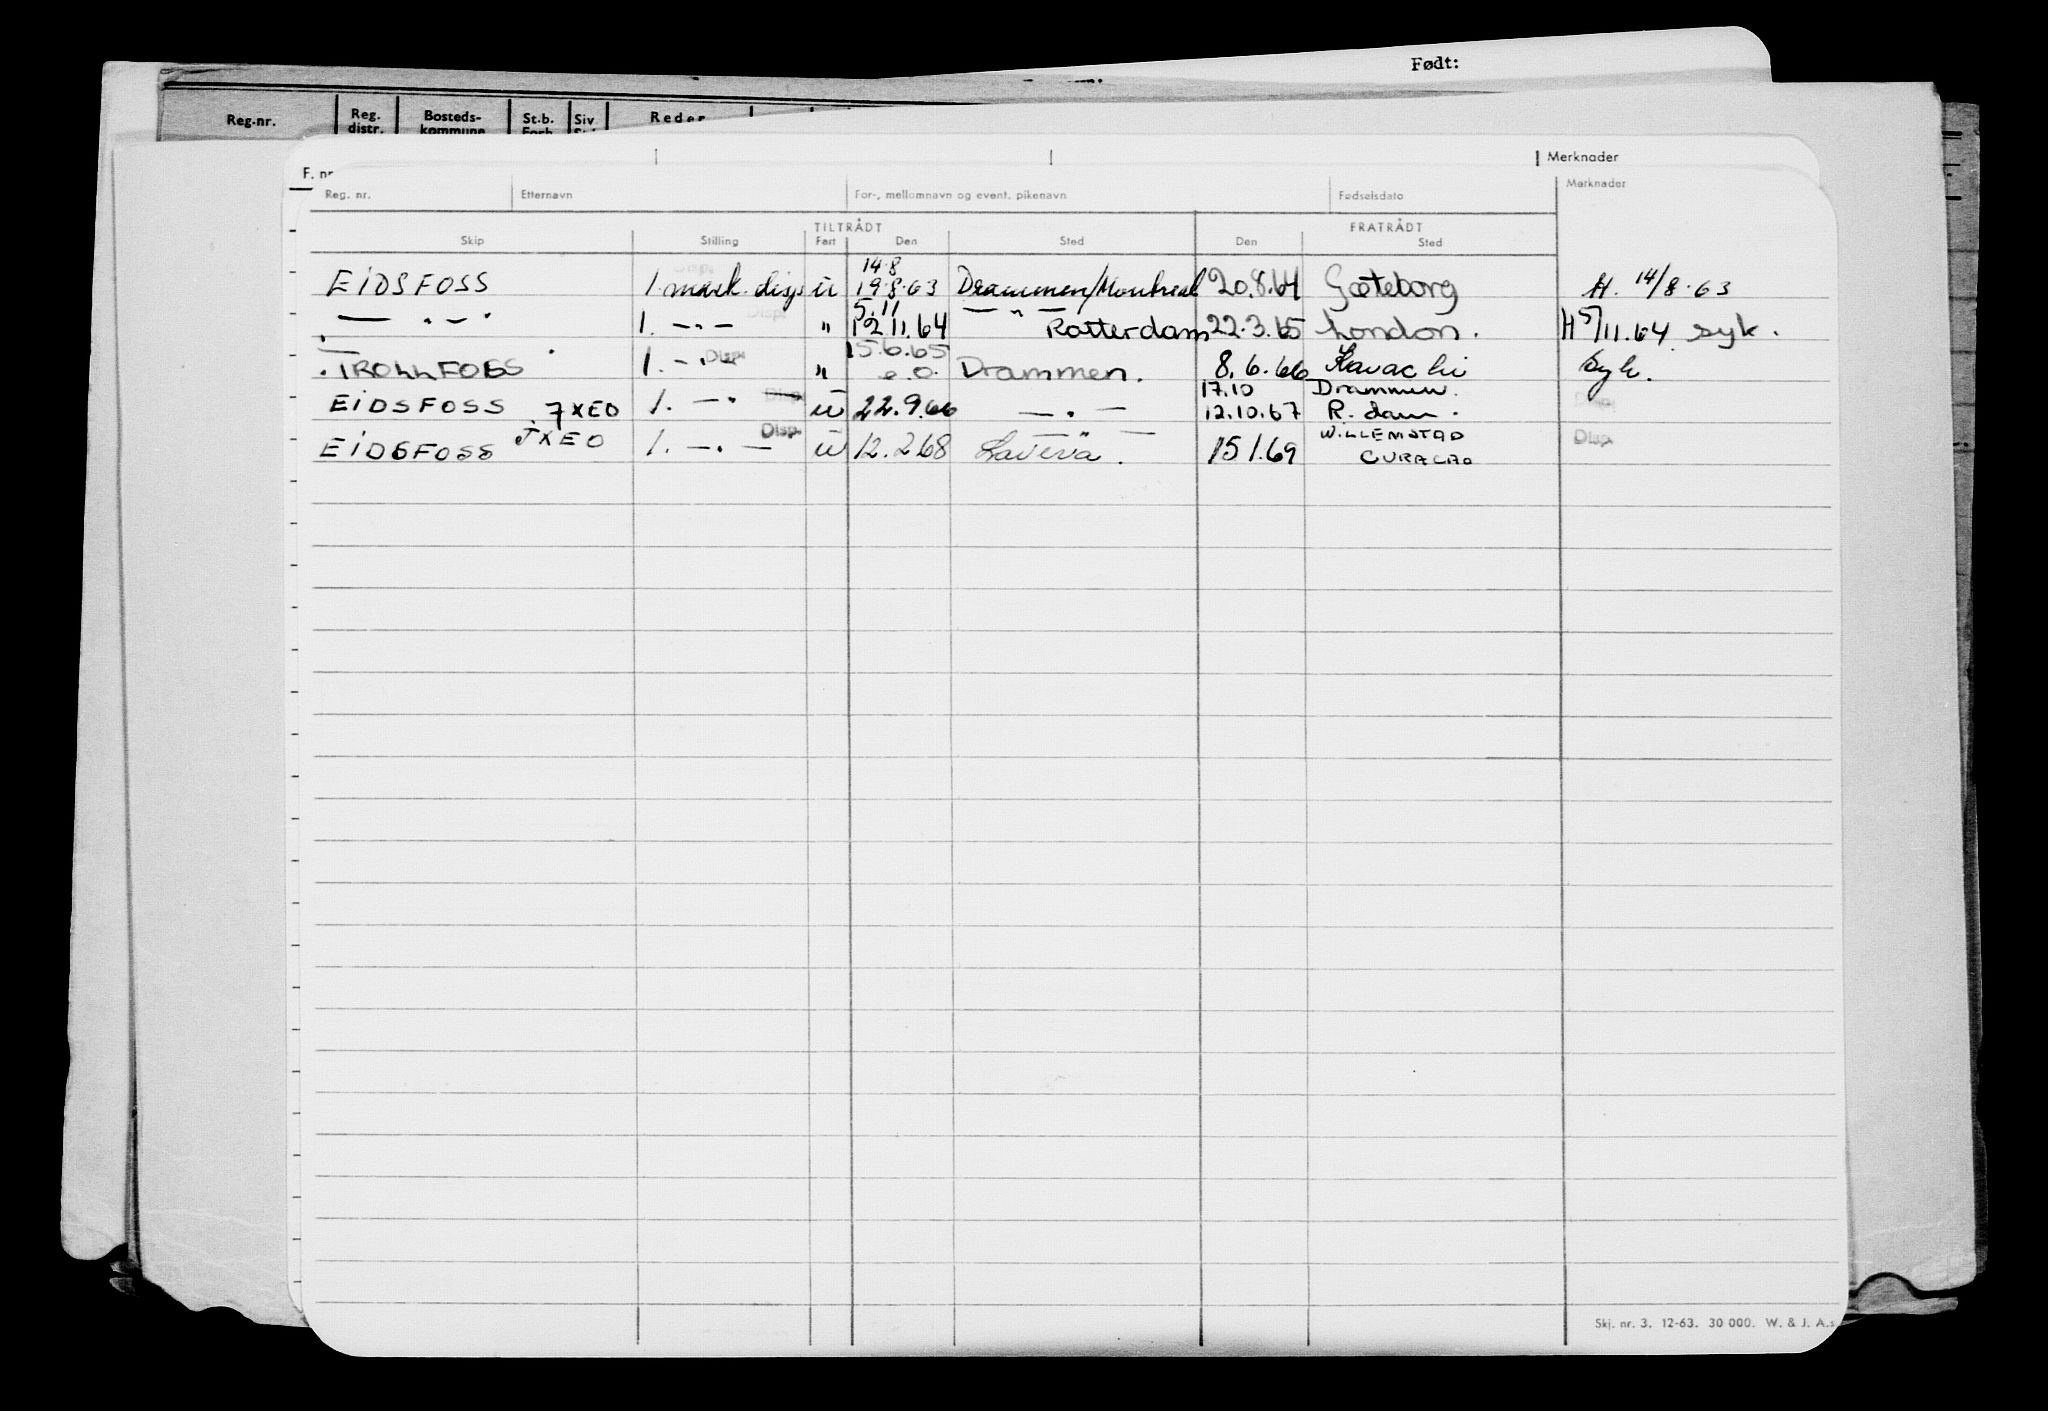 Født:
Reg.nr. Reg. distr. Bosteds- kommune St.b. Siv. Reder
F. nr Merknader
Reg. nr. Etternavn For-, mellomnavn og event. pikenavn Fødselsdato Merknader
TILTRÅDT FRATRÅDT
Skip Stilling Fart Den Sted Den Sted
14.8
EIDSFOSS 1. mask. disp ü 19.8.63 Drammen/Montreal 20.8.64 Gøteborg H. 14/8.63
5.11 — " —
— " — 1. — " — Disp. " 12 11.64 Rotterdam 22.3.65 London. H 5/11.64 syk.
15.6.65
TROLLFOSS 1. — " — Disp. " e.o. Drammen. 8.6.66 Karachi Syk.
17.10 Drammen.
EIDSFOSS JXEO 1. — " — Disp. ü 22.9.66 — " — 12.10.67 R.dam. Disp.
WILLEMSTAD
EIDSFOSS JXEO 1. — " — Disp. ü 12.2.68 — " — 15 1.69 CURACAO Disp.
Skj. nr. 3. 12-63. 30 000. W. & J. A.s